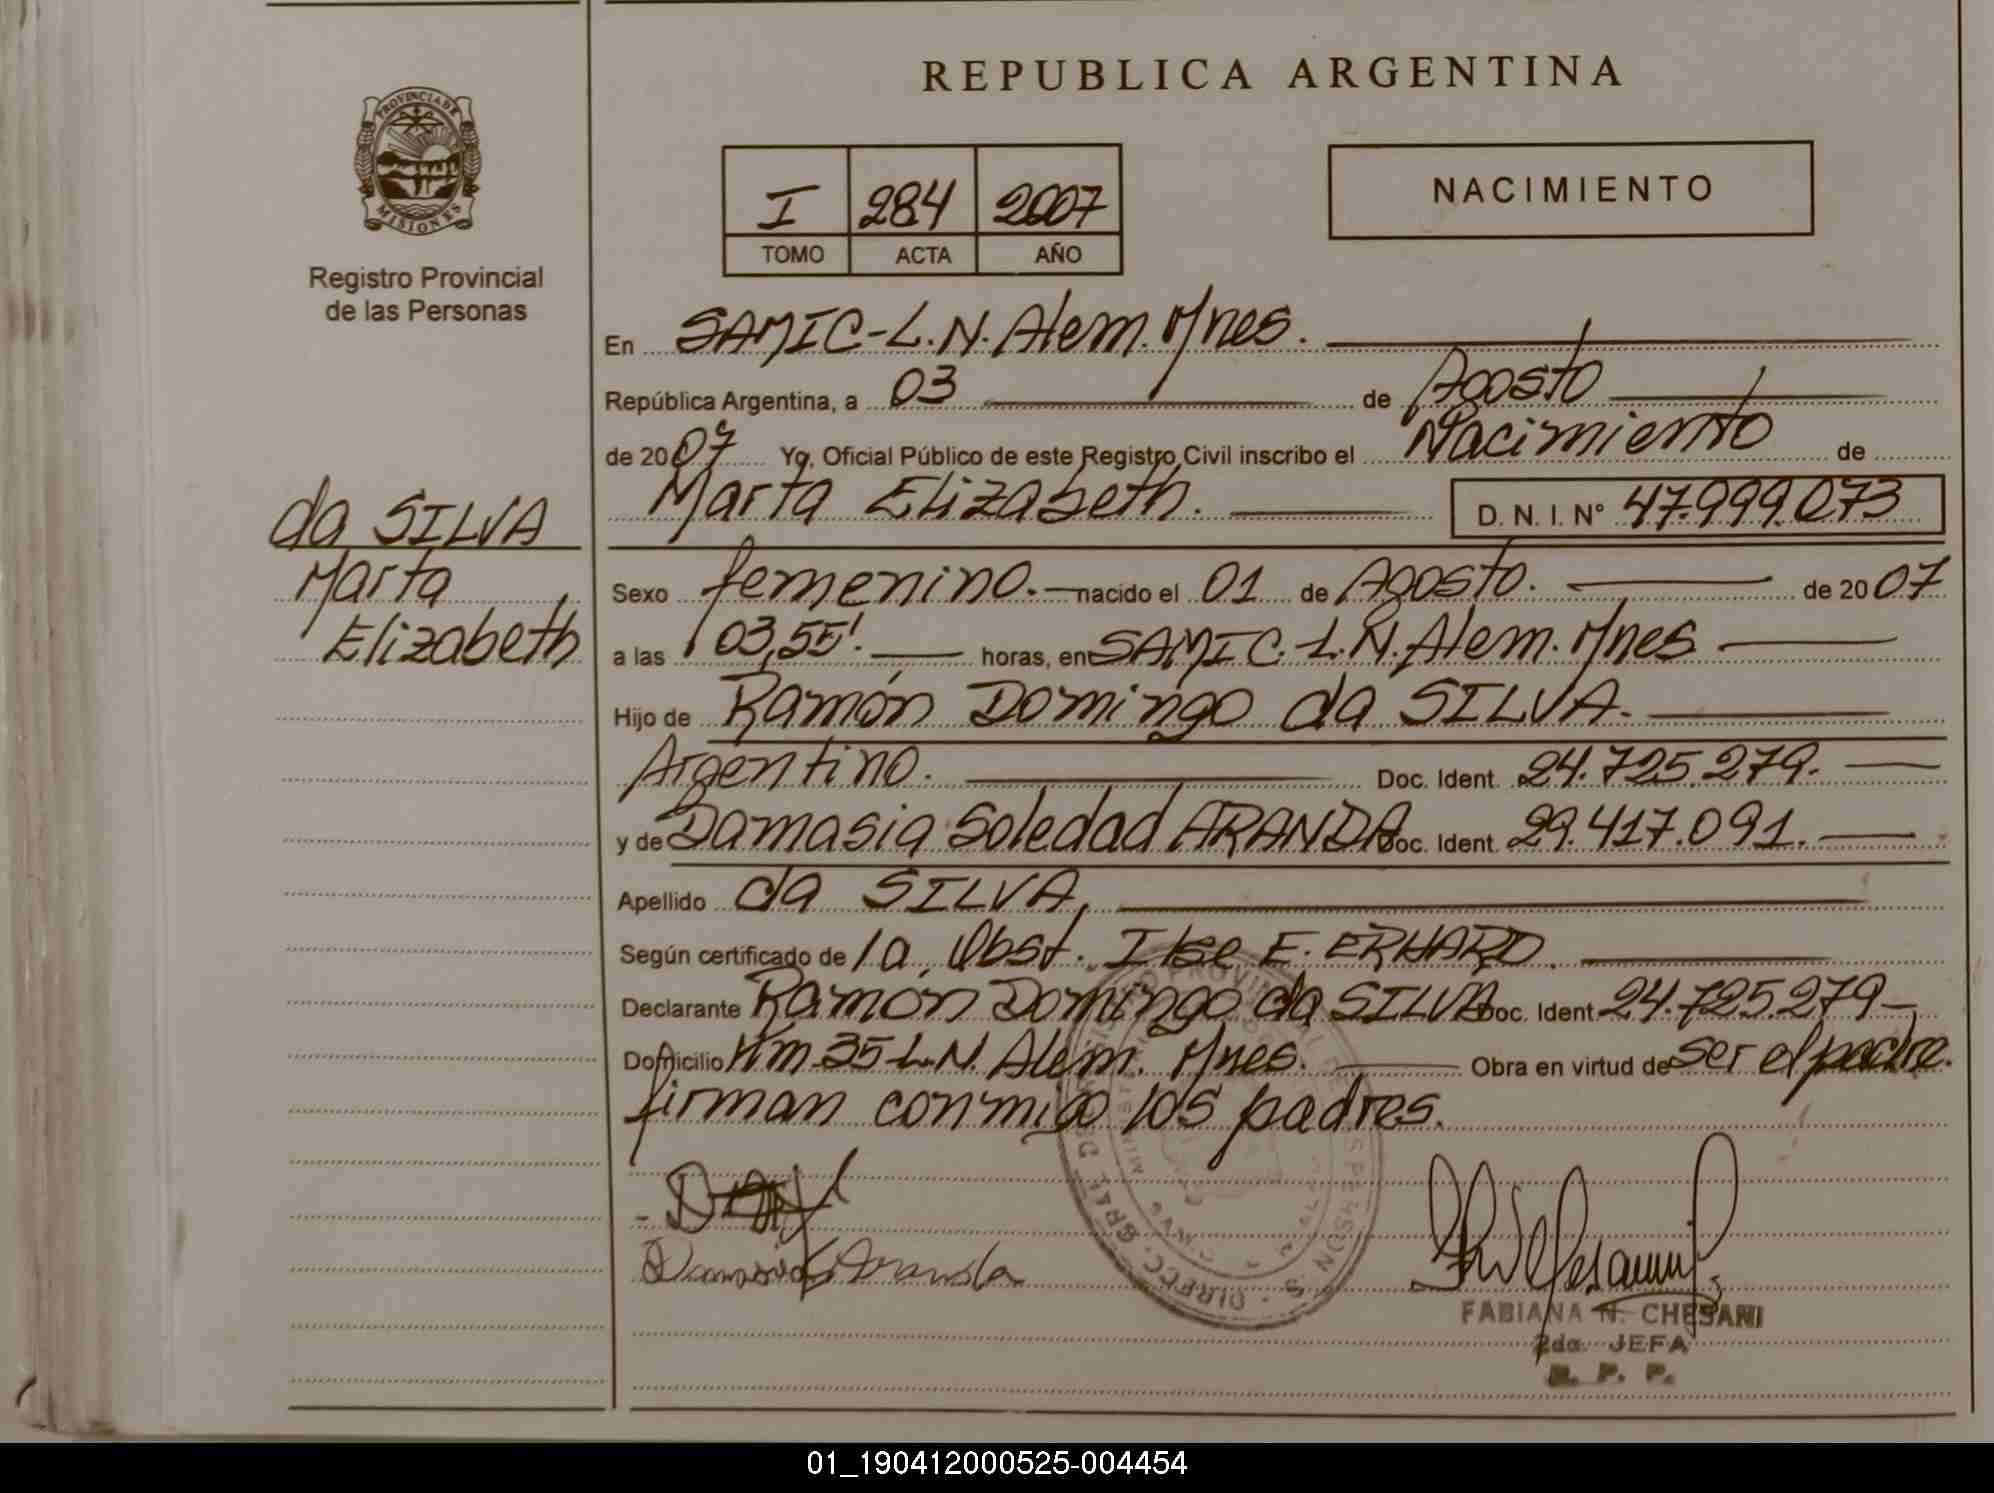 REPUBLICA ARGENTINA
PROVINCIA DE
MISIONES
Registro Provincial
de las Personas
I 284 2007
TOMO ACTA AÑO
NACIMIENTO
En SAMIC-L.N. Alem. Mnes.
República Argentina, a 03 de Agosto
de 2007 Yo, Oficial Público de este Registro Civil inscribo el Nacimiento de
Marta Elizabeth. D. N. I. N° 47.999.073
da SILVA
Marta
Elizabeth
Sexo femenino. nacido el 01 de Agosto. de 2007
a las 03,55'. horas, en SAMIC. L.N. Alem. Mnes
Hijo de Ramón Domingo da SILVA.
Argentino. Doc. Ident. 24.725.279.
y de Damasia Soledad ARANDA Doc. Ident. 29.417.091.
Apellido da SILVA,
Según certificado de la Obst. Ilse E. ERHARD.
Declarante Ramon Domingo da SILVA Doc. Ident. 24.725.279-
Domicilio Km 35 L.N. Alem. Mnes. Obra en virtud de ser el padre.
firman conmigo los padres.
Damasia S Aranda
FABIANA N. CHESANI
2da. JEFA
R. P. P.
01_190412000525-004454